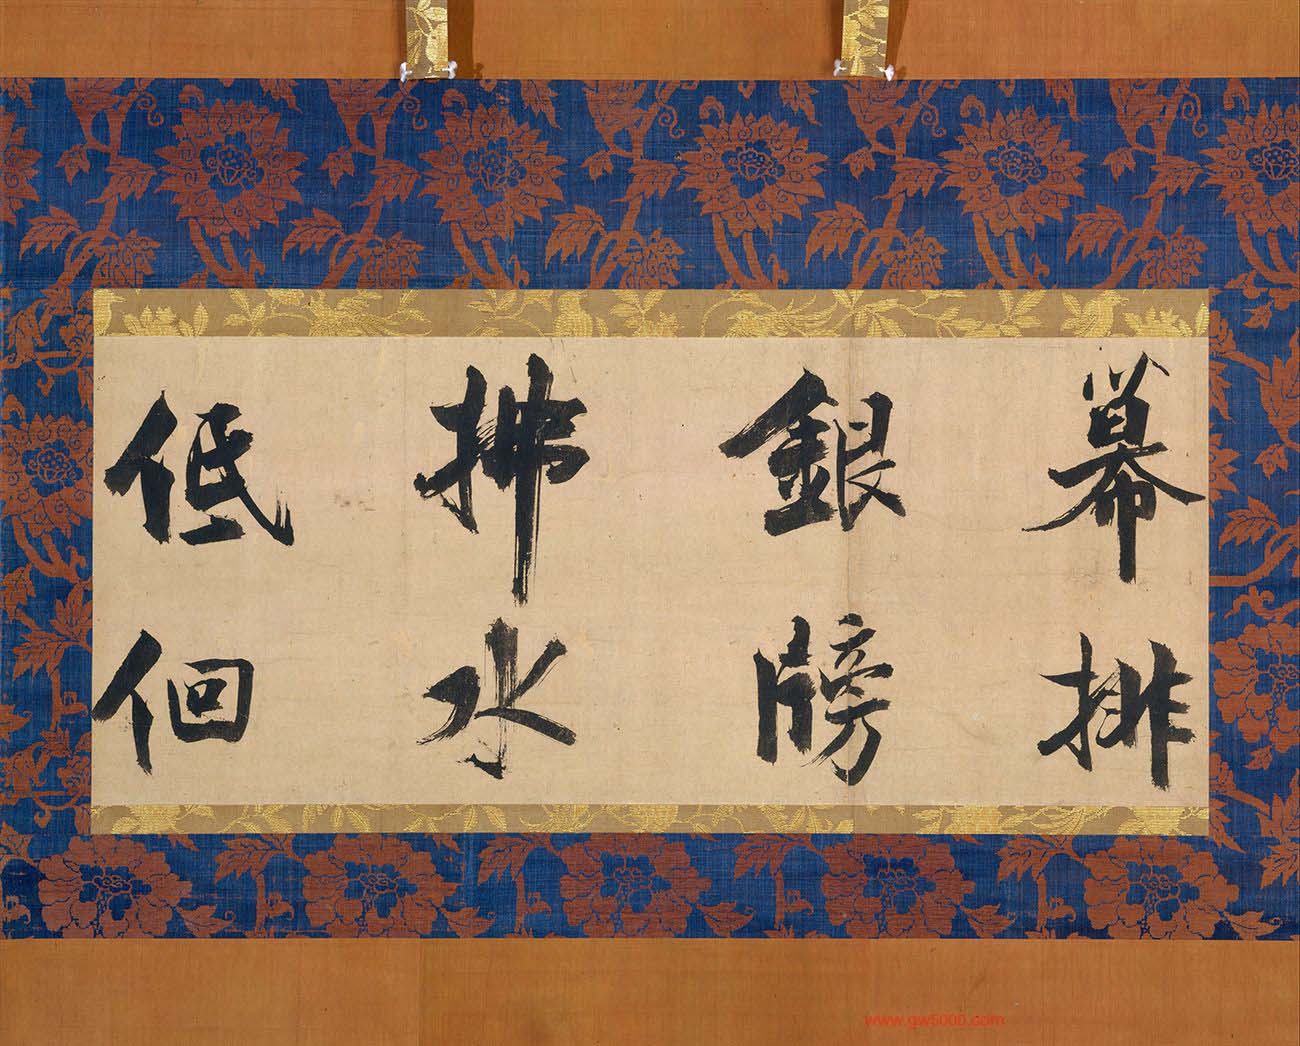 幕排
銀牓
拂水
低佪
www.gw5000.com